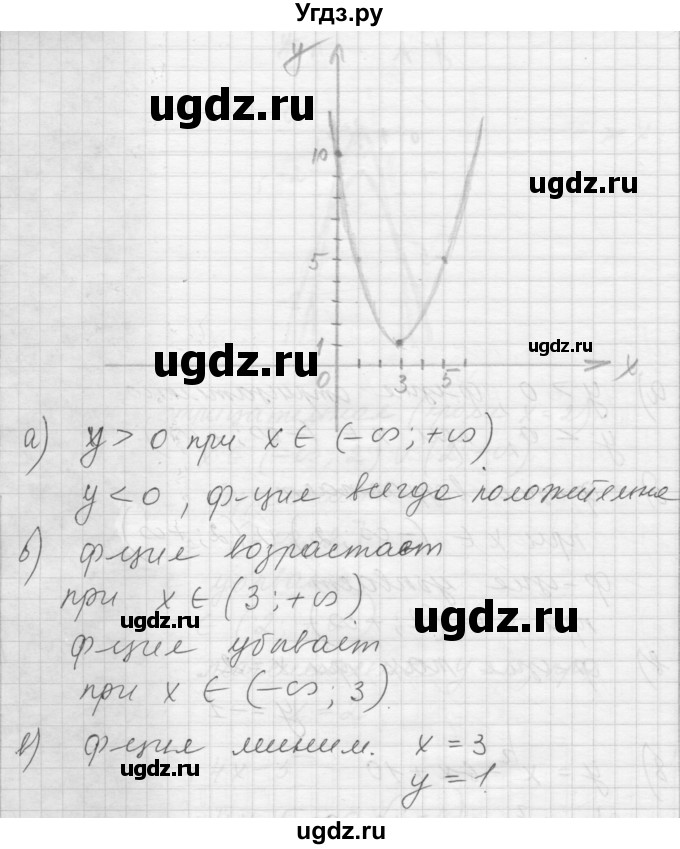 Угдз.ру
y
ugdz.ru
10
ugdz.ru
5
1
ugdz.ru
ugdz.ru
0 3 5 x
а) y > 0 при x ∈ (-∞; +∞)
y < 0, ф-ция всегда положительна
б) ф-ция возрастает
при x ∈ (3; +∞)
ugdz.ru
ugdz.ru
ф-ция убывает
при x ∈ (-∞; 3)
в) ф-ция миним. x = 3
ugdz.ru
y = 1.
ugdz.ru